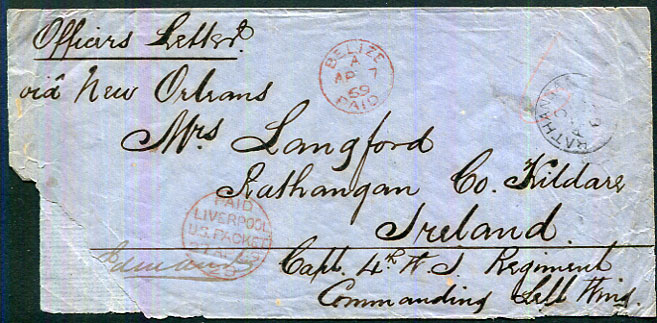 Officers Letter
viâ New Orleans
BELIZE
A
AP 7
69
PAID
RATHANGAN
Mrs Langford
Rathangan Co. Kildare
Ireland
PAID
LIVERPOOL
U.S. PACKET
Capt. 4th W I Regiment
Commanding Left Wing.